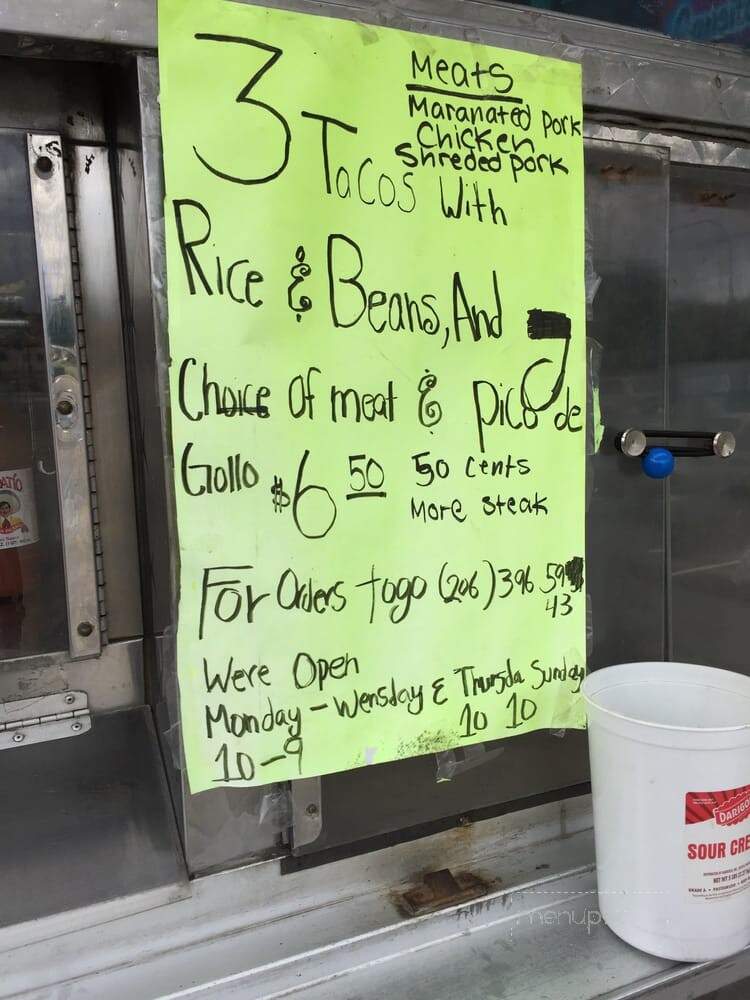 Meats
Maranated Pork
Chicken
Shreded Pork
3 Tacos With
Rice & Beans, And
Choice Of meat & pico de
Gollo $6 50 50 cents
More steak
For Orders togo (206) 396 59
43
Were Open
Monday - Wensday & Thursda Sunday
10-9 10 10
DARIGO
SOUR CRE
menup